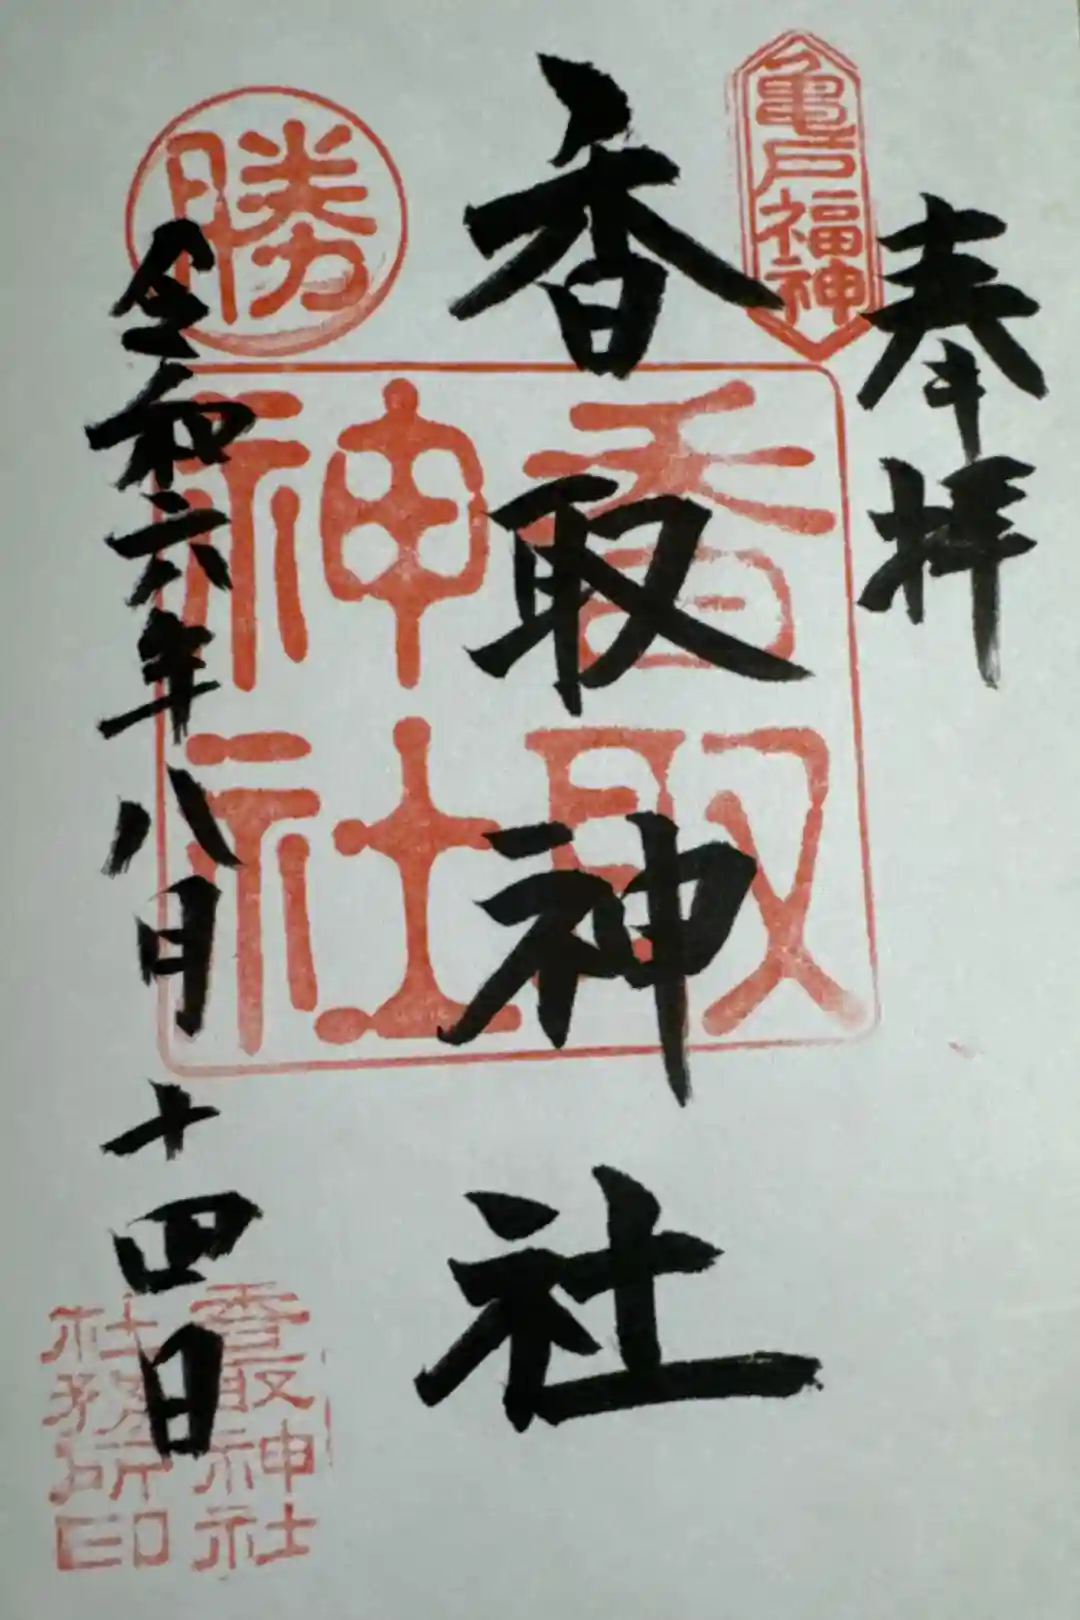 奉拝
亀戸福神
香取神社
香取
神社
勝
令和六年八月十四日
香取神社
社務所印